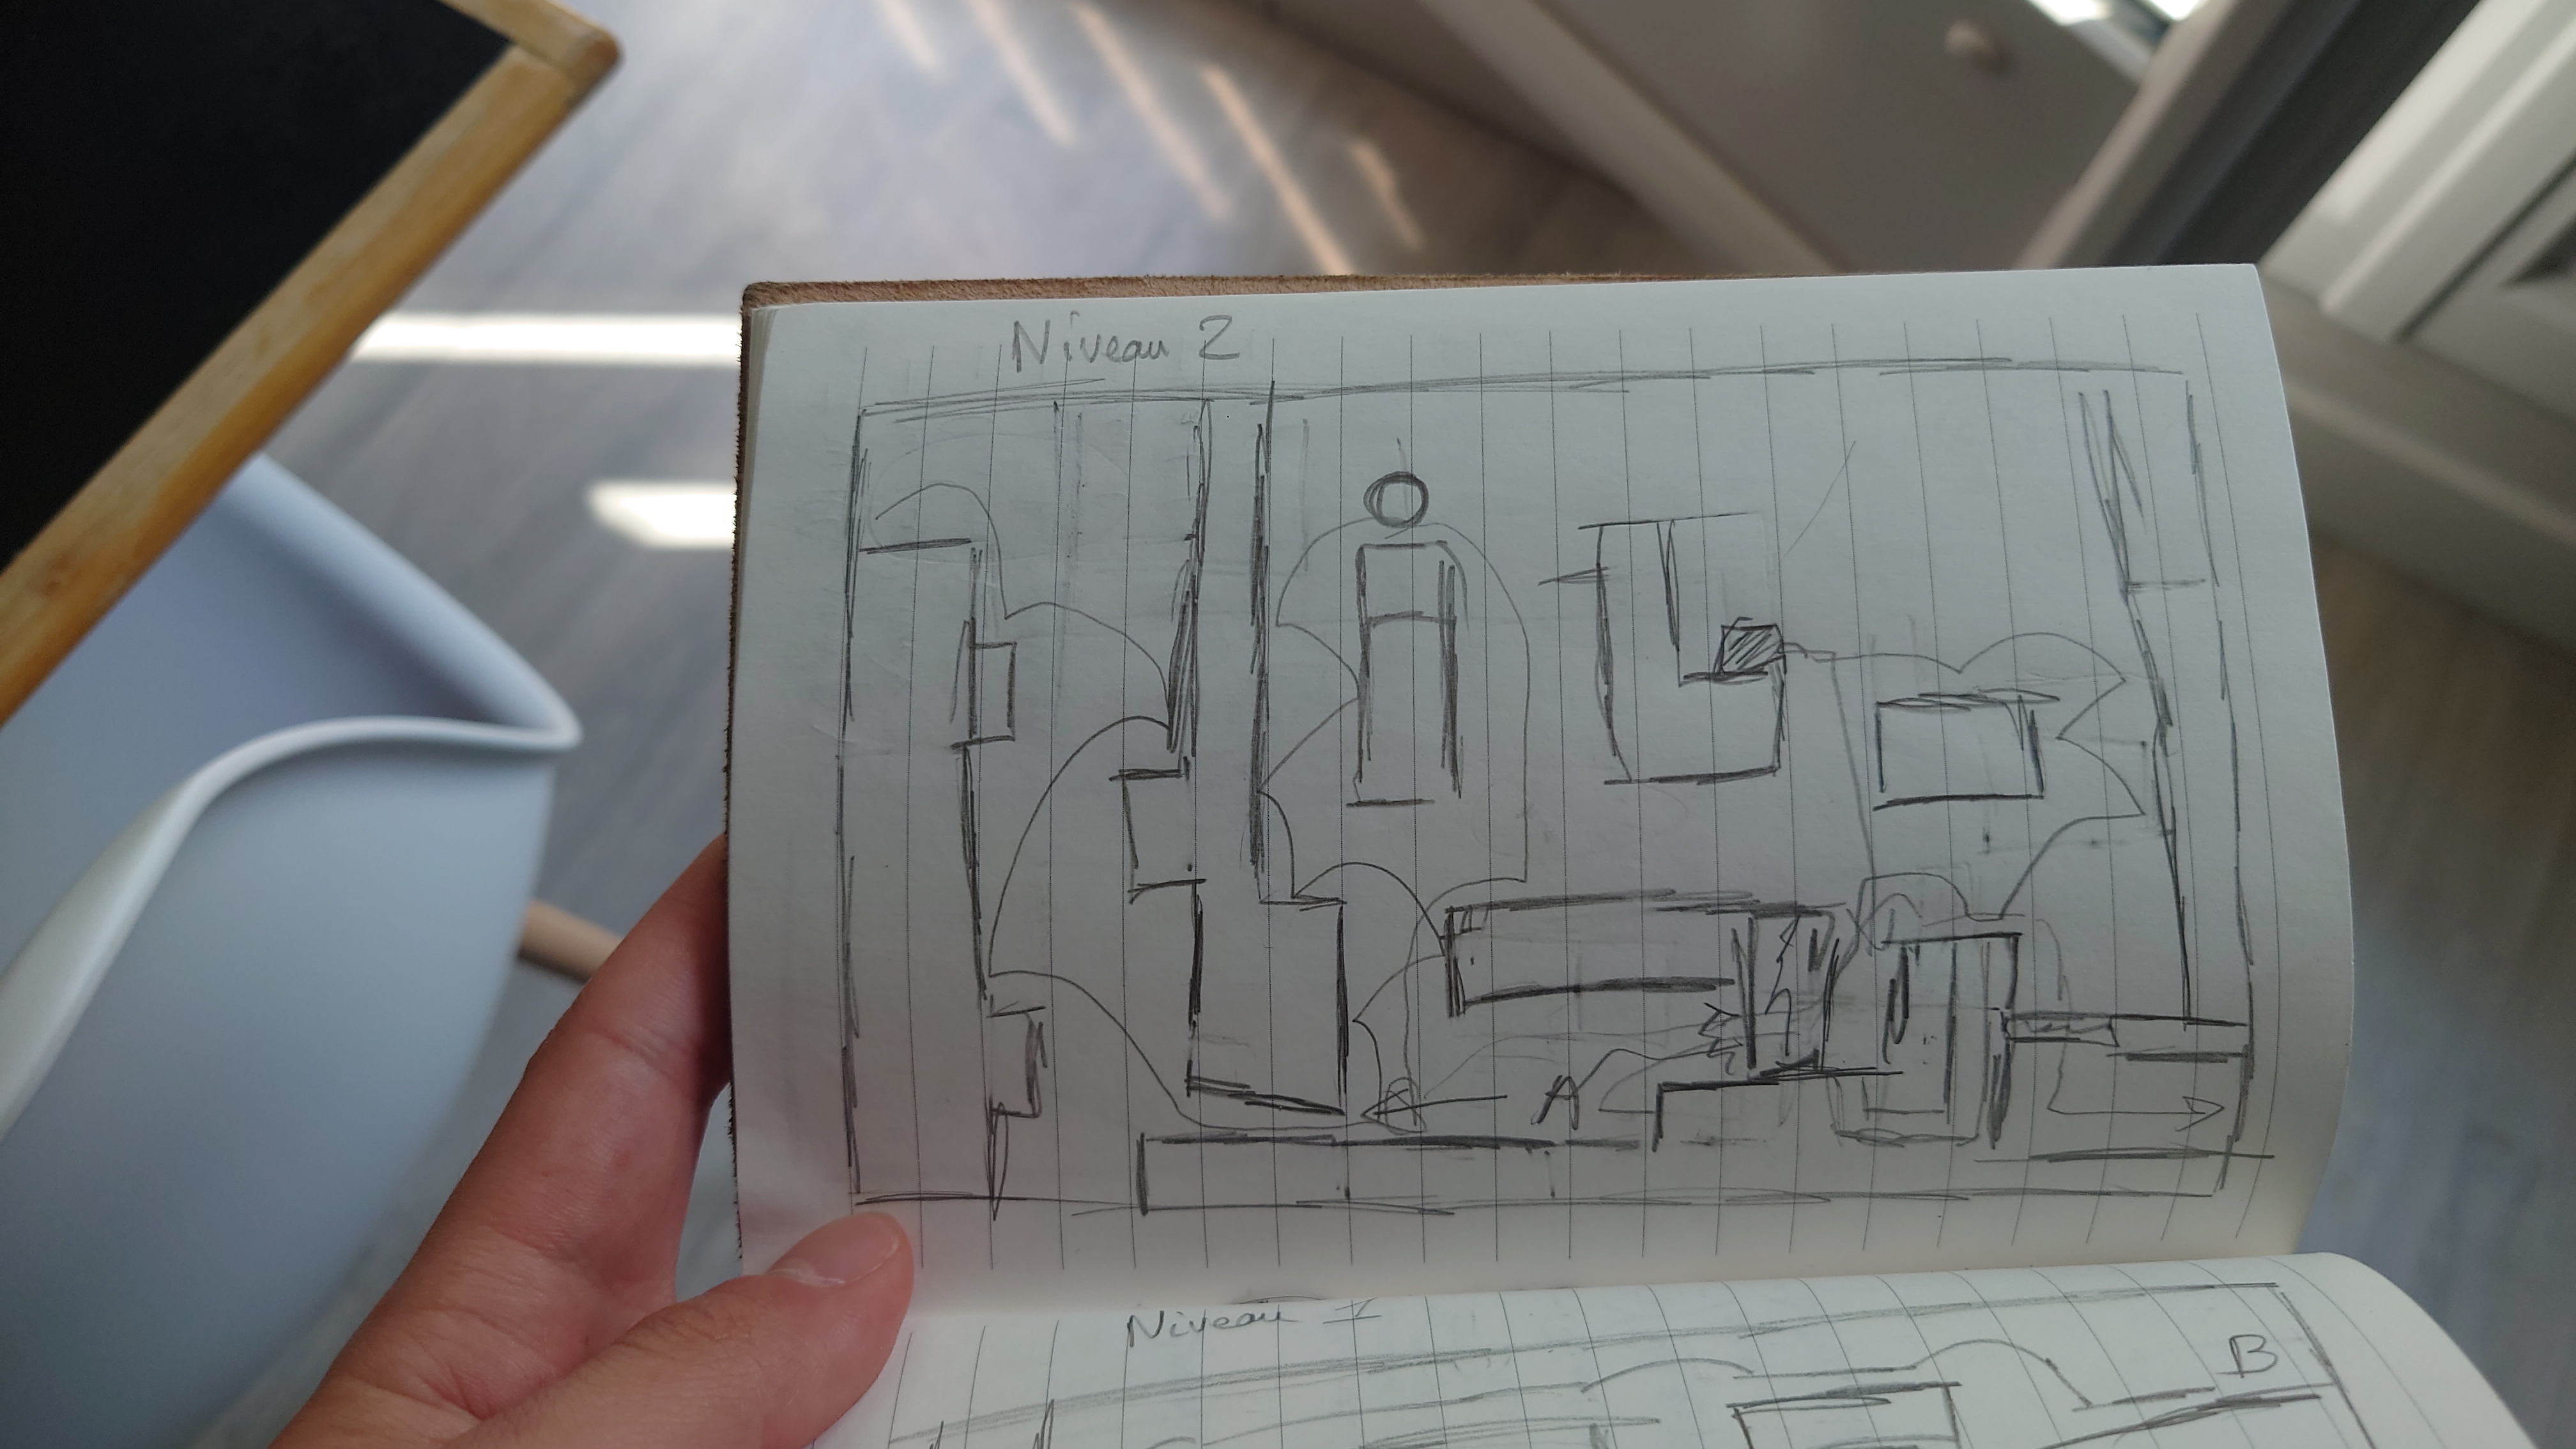 Niveau 2
A
Niveau 1
B